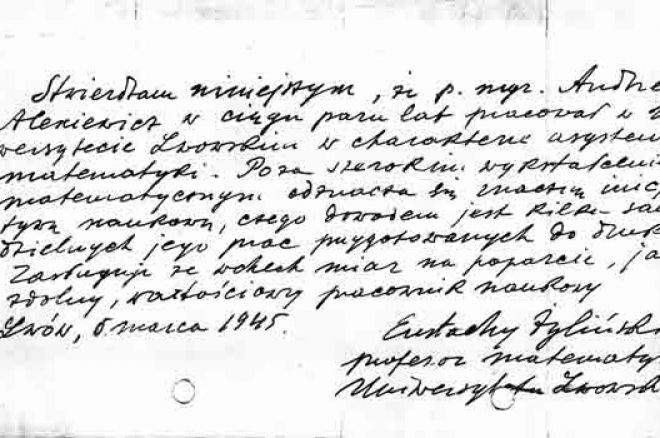 Stwierdzam niniejszym, że p. mgr. Andrz
Alexiewicz w ciągu paru lat pracował w U
wersytecie Lwowskim w charakterze asysten
matematyki. Poza szerokim wykształceni
matematycznym odznacza się znaczną inicj
tywą naukową, czego dowodem jest kilka sa
dzielnych jego prac przygotowanych do druk
Zasługuje ze wszech miar na poparcie, ja
zdolny, wartościowy pracownik naukowy
Lwów, 5 marca 1945.
Eustachy Żylińsk
profesor matematy
Uniwersytetu Lwowsk